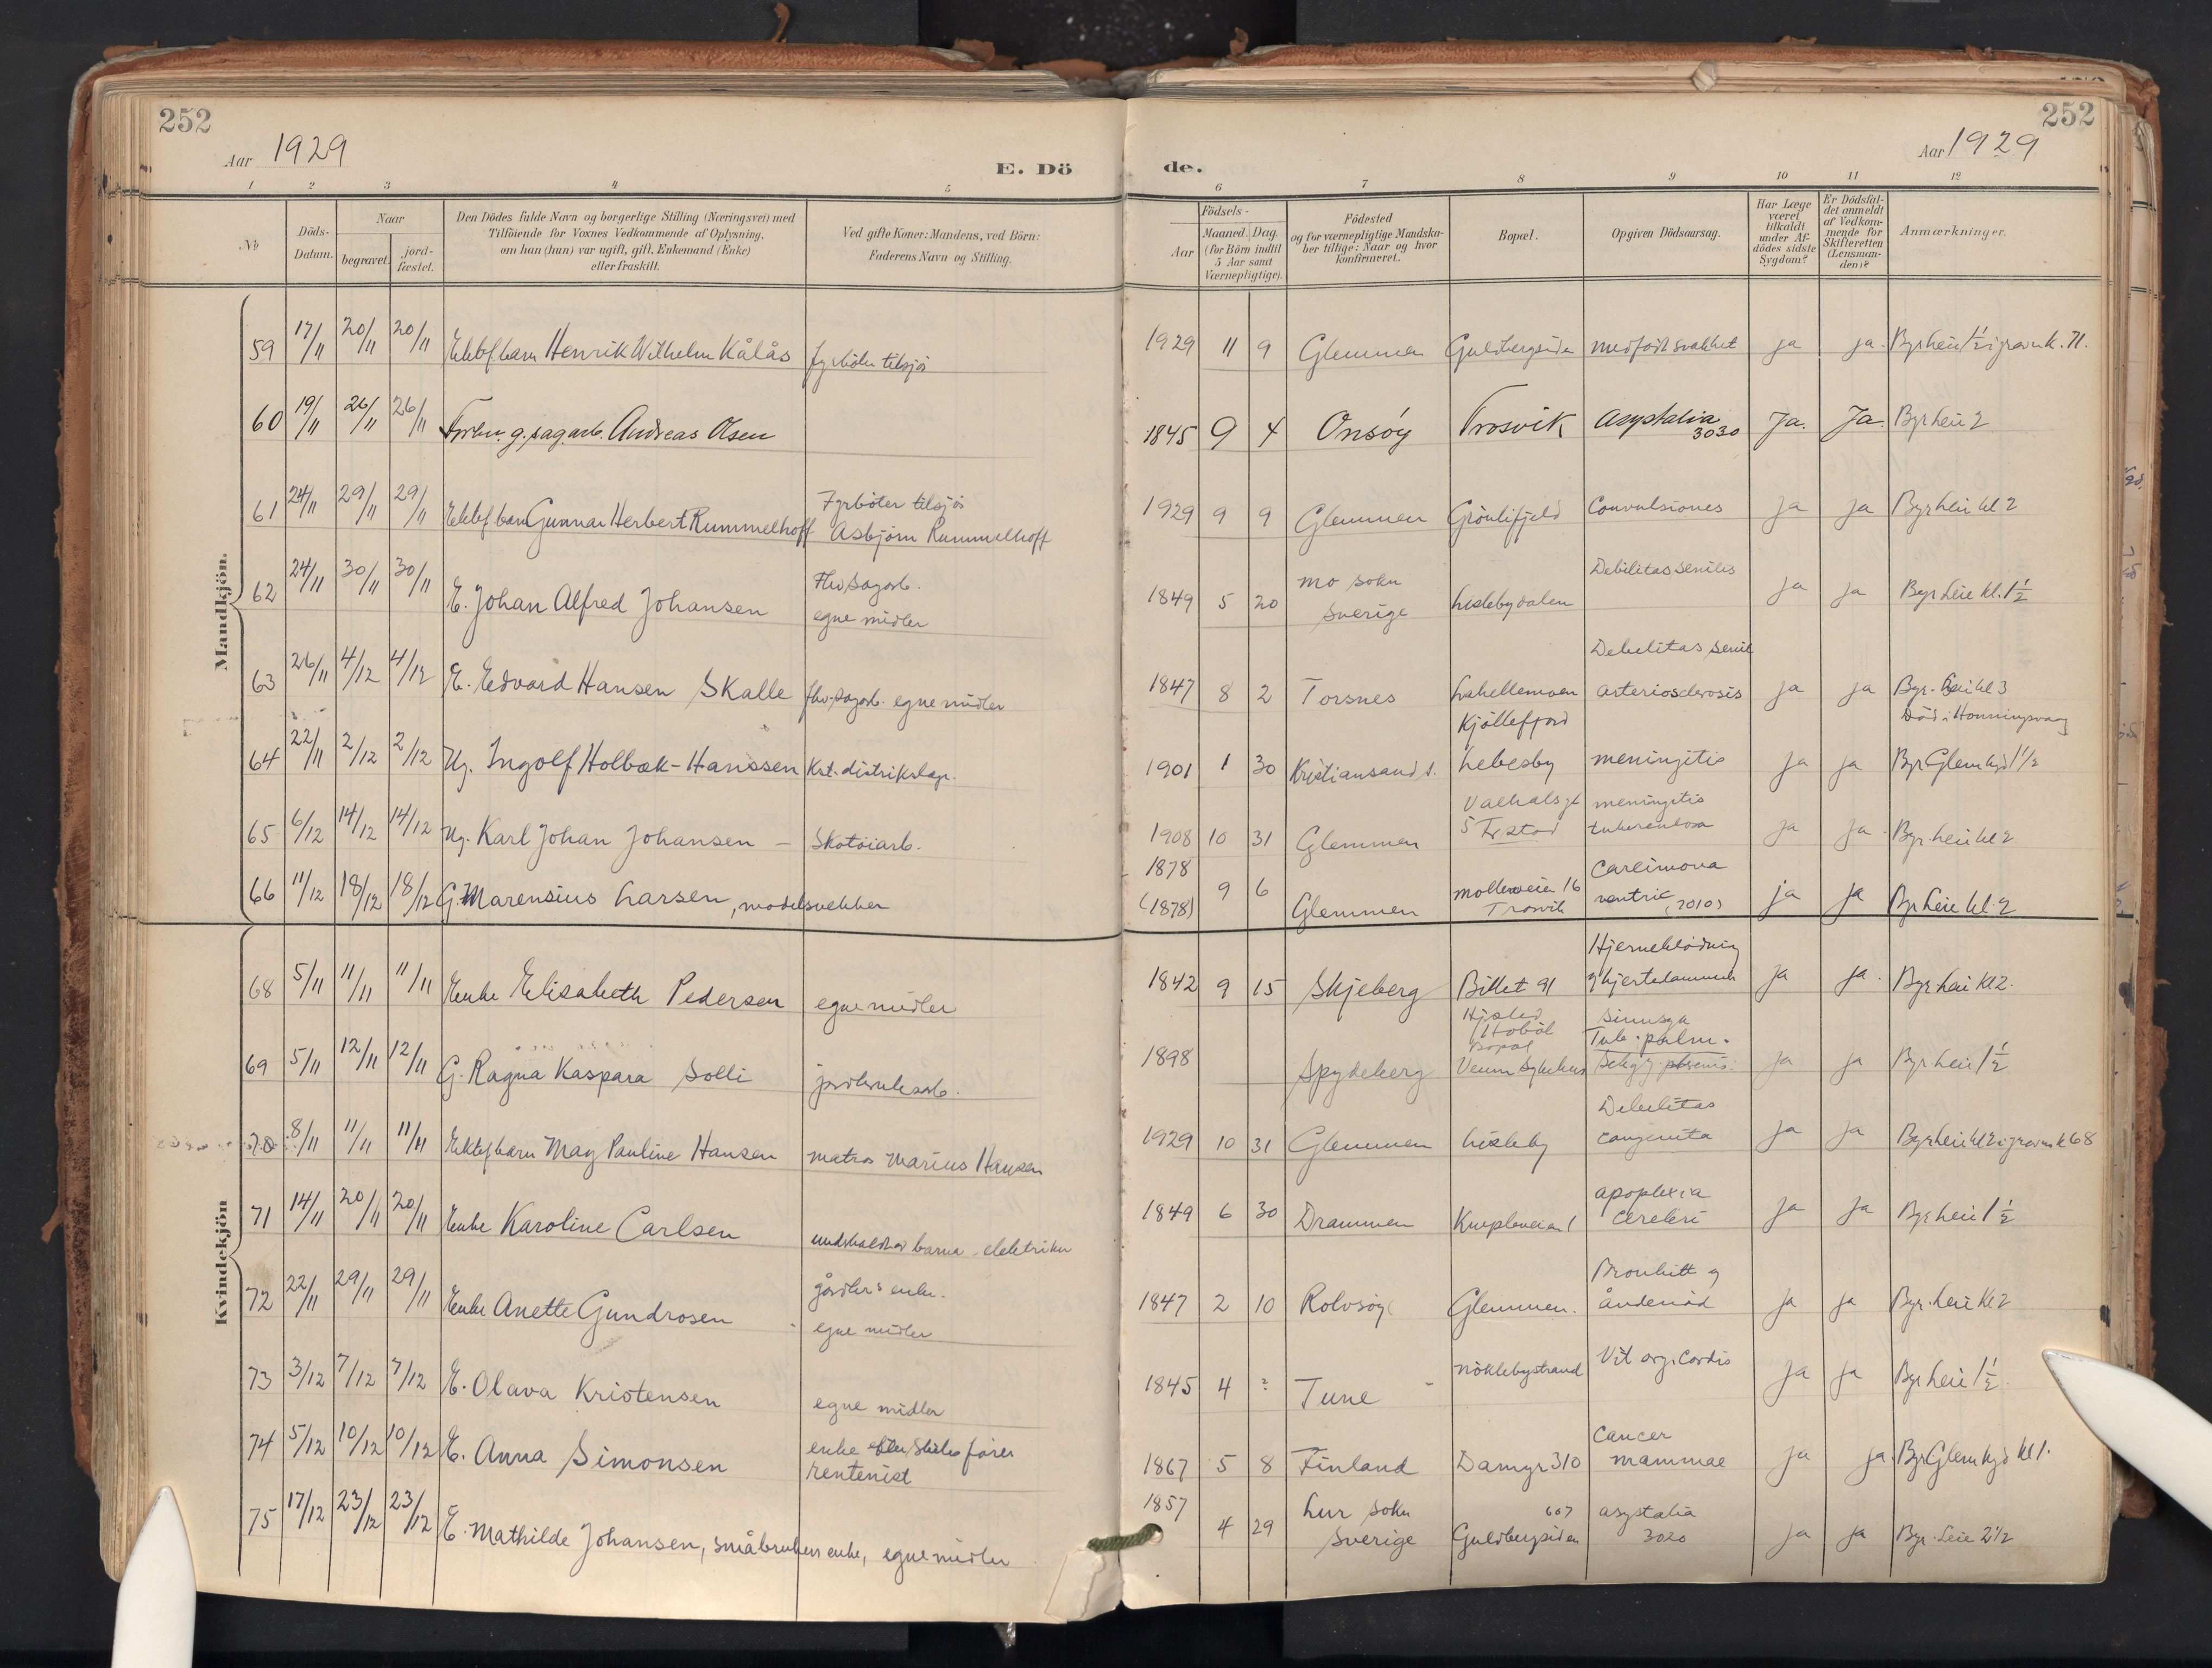 252
Aar 1929
E. Dö
1 2 3 4 5
№
Döds-
Datum.
Naar
begravet.
jord-
fæstet.
Den Dödes fulde Navn og borgerlige Stilling (Næringsvei) med
Tilföiende for Voxnes Vedkommende af Oplysning,
om han (hun) var ugift, gift, Enkemand (Enke)
eller fraskilt.
Ved gifte Koner: Mandens, ved Börn:
Faderens Navn og Stilling.
Mandkjön.
59 17/11 20/11 20/11 Ektef. barn Henrik Wilhelm Kålås fyrböter tilsjös
60 19/11 26/11 26/11 g. sagarb. Andreas Olsen
Fyrböter tilsjös
61 24/11 29/11 29/11 Ektef barn Gunnar Herbert Rummelhoff Asbjörn Rummelhoff
Fhv. Sagarb.
62 24/11 30/11 30/11 E. Johan Alfred Johansen
egne midler
63 26/11 4/12 4/12 E. Edvard Hansen Skalle fhv. sagarb. egne midler
64 22/11 2/12 2/12 Ug. Ingolf Holbæk-Hanssen Kst. distrikslæge.
65 6/12 14/12 14/12 Ug. Karl Johan Johansen – Skotöiarb.
66 11/12 18/12 18/12 G. Marensius Larsen, modelsnekker
Kvindekjön
68 5/11 11/11 11/11 Enke Elisabeth Pedersen egne midler
69 5/11 12/11 12/11 G. Ragna Kaspara Solli jordbruksarb.
70 8/11 11/11 11/11 Ektef barn May Pauline Hansen matros Marius Hansen
71 14/11 20/11 20/11 Enke Karoline Carlsen barna elektriker
72 22/11 29/11 29/11 Enke Anette Gundrosen gårdbr's enke.
egne midler
73 3/12 7/12 7/12 E. Olava Kristensen
egne midler
74 5/12 10/12 10/12 E. Anna Simonsen enke efter Skibsförer
rentenist
75 17/12 23/12 23/12 E. Mathilde Johansen, småbrukers enke, egne midler
252
Aar 1929
de.
6 7 8 9 10 11 12
Födsels-
Aar
Maaned. Dag.
(for Börn indtil
5 Aar samt
Værnepligtige).
Födested
og for værnepligtige Mandska-
ber tillige: Naar og hvor
konfirmeret.
Bopæl.
Opgiven Dödsaarsag.
Har Læge
været
tilkaldt
under Af-
dödes sidste
Sygdom?
Er Dödsfal-
det anmeldt
af Vedkom-
mende for
Skifteretten
(Lensman-
den)?
Anmærkninger.
1929 11 9 Glemmen Guldbergsiden medfödt svakhet ja ja. Byr Leie 1½ i grav m k. 71.
1845 9 4 Onsöy Trosvik Asystolia
3030 Ja. Ja. Byr Leie 2
1929 9 9 Glemmen Grönlifjeld Convulsiones ja ja Byr Leie kl 2
Mo sokn Debilitas senilis
1849 5 20 Sverige Lislebydalen ja ja Byr Leie kl. 1½
Debilitas senil
1847 8 2 Torsnes Lahellemoen arteriosclerosis ja ja Byr. Leie kl 3
Kjöllefjord Död i Honningsvaag
1901 1 30 Kristiansand s. Lebesby meningitis ja ja Byr Glem kgd 1½
Valhalsgt meningitis
1908 10 31 Glemmen 5 Fr.stad tuberculosa ja ja. Byr. Leie kl 2
1878 Carcinoma
(1878) 9 6 Glemmen Mölleveien 16
Trosvik ventric (2010) ja ja Byr Leie kl. 2
Hjerneblödning
1842 9 15 Skjeberg Billet 91 ja ja. Byr Leie kl 2.
Hjsted
Hobøl
Bopæl Sinnsyk
Tub. pulm.
1898 Spydeberg Veum Sykehus ja ja Byr Leie 1½
Debilitas
1929 10 31 Glemmen Lisleby congenita ja ja Byr Leie kl 2 i grav m k 68
apoplexia
1849 6 30 Drammen Knipleveien 1 cerebri ja ja Byr Leie 1½
Bronkitt og
1847 2 10 Rolvsöy Glemmen. åndenöd ja ja Byr. Leie kl 2
1845 4 ? Tune – Nöklebystrand Vit. org. Cordis ja ja Byr Leie 1½.
Cancer
1867 5 8 Finland Damyr 310 mammae ja ja. Byr Glem kgd kl 1.
1857 Lur sokn 607 asystolia
4 29 Sverige Guldbergsiden 3020 ja ja Byr. Leie 2½